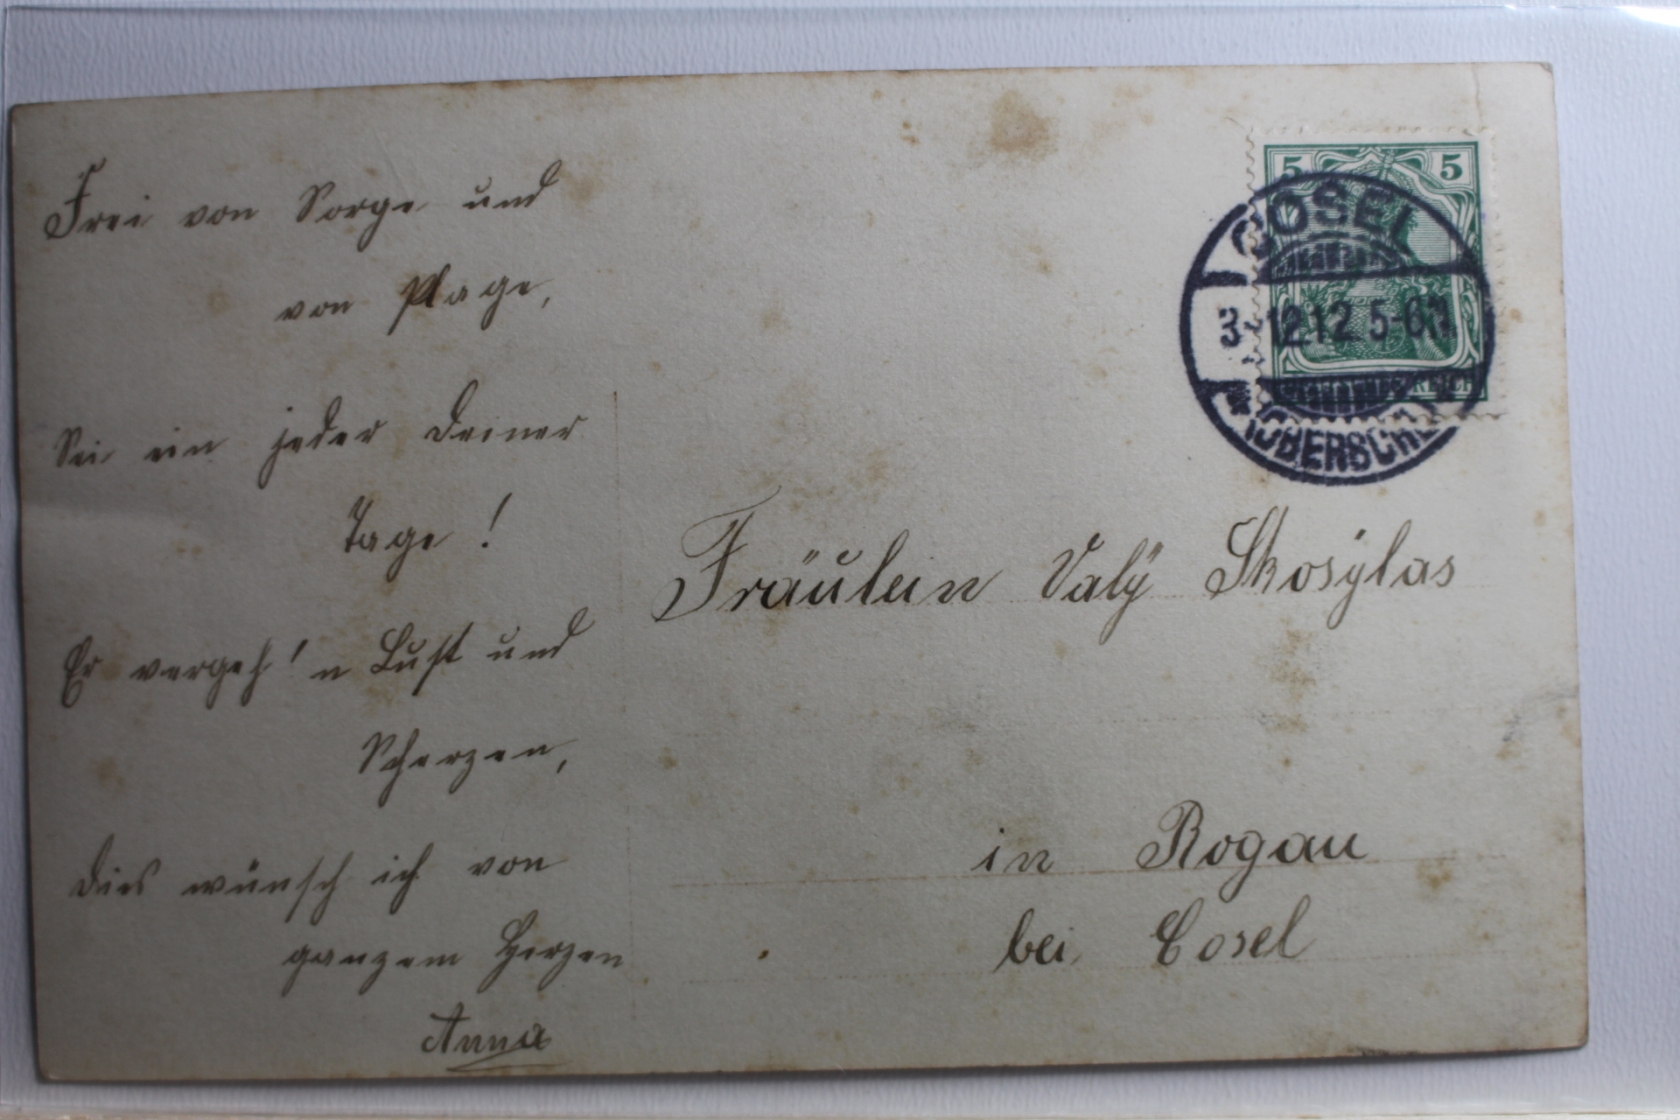 Frei von Sorge und
von Plage,
Sei ein jeder deiner
Tage!
Er vergeh'n Lust und
Scherzen,
Dies wünsch ich von
ganzem Herzen
Anna
5 5
COSEL
3.12.12. 5-6N
REICH
(OBERSCHL.)
Fräulein Valÿ Skosÿlas
in Rogau
bei Cosel